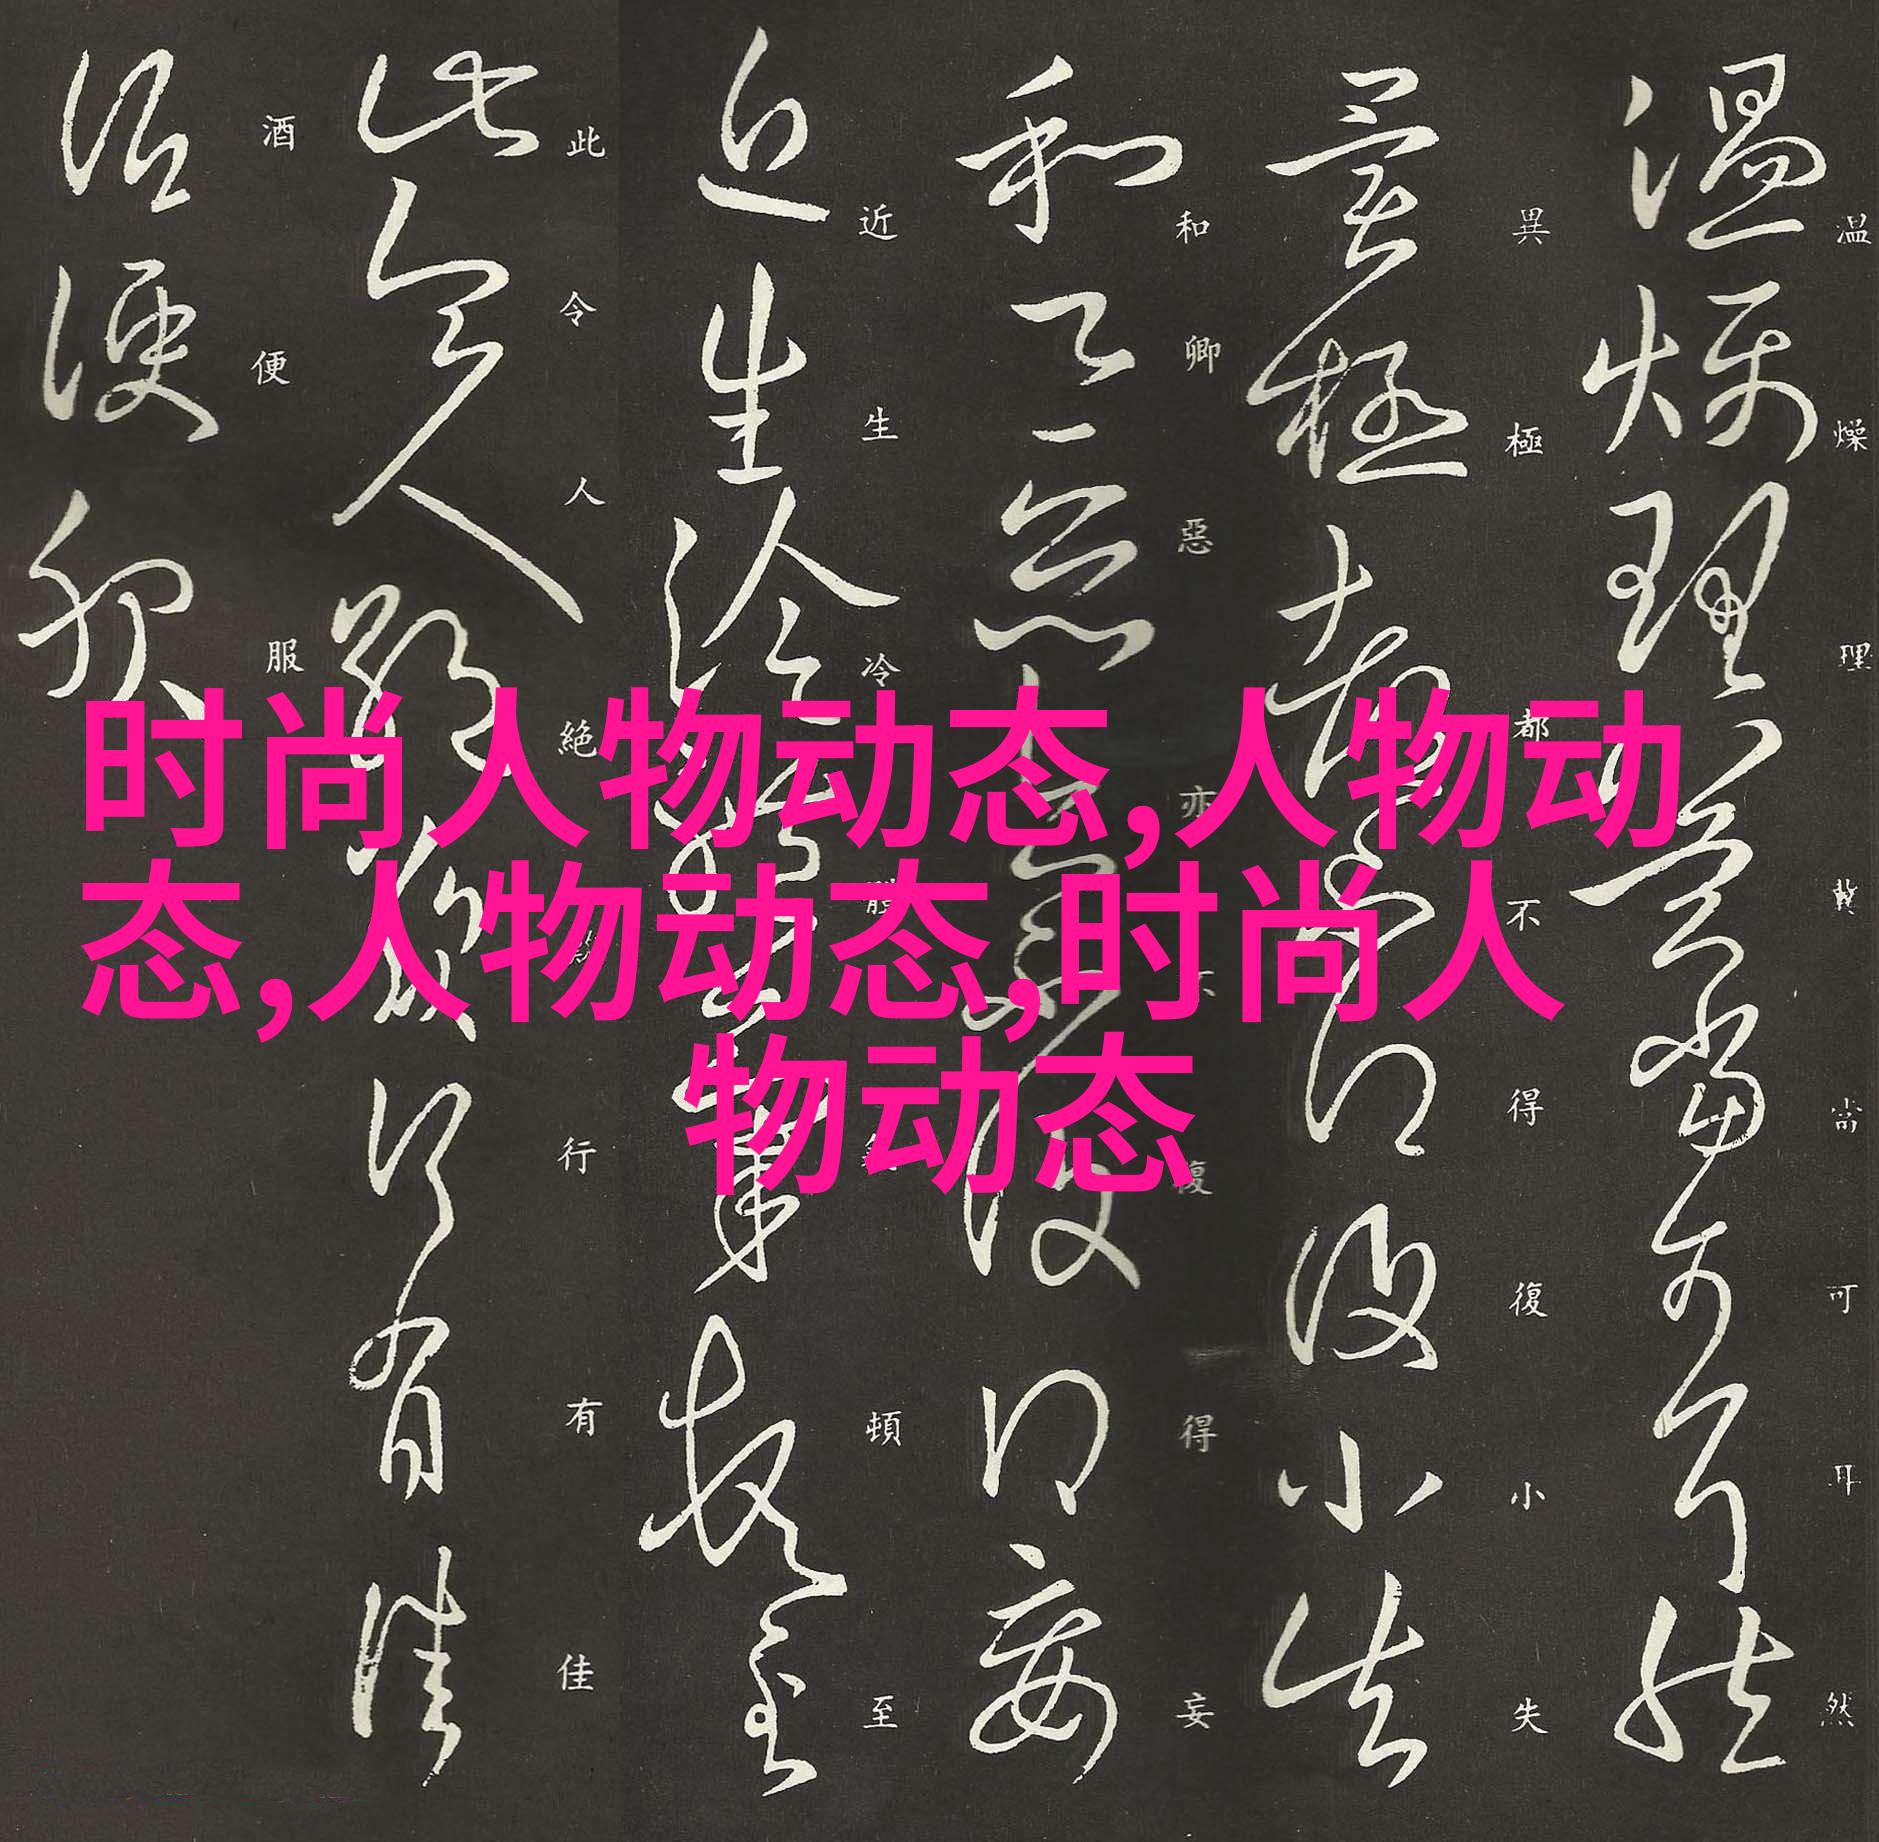 温燥理冀當可耳然
異極都不得復小失
和卿惡亦不復得妄
近生冷體頓至
此令人絶行有佳
酒便服
时尚人物动态,人物动
态,人物动态,时尚人
物动态